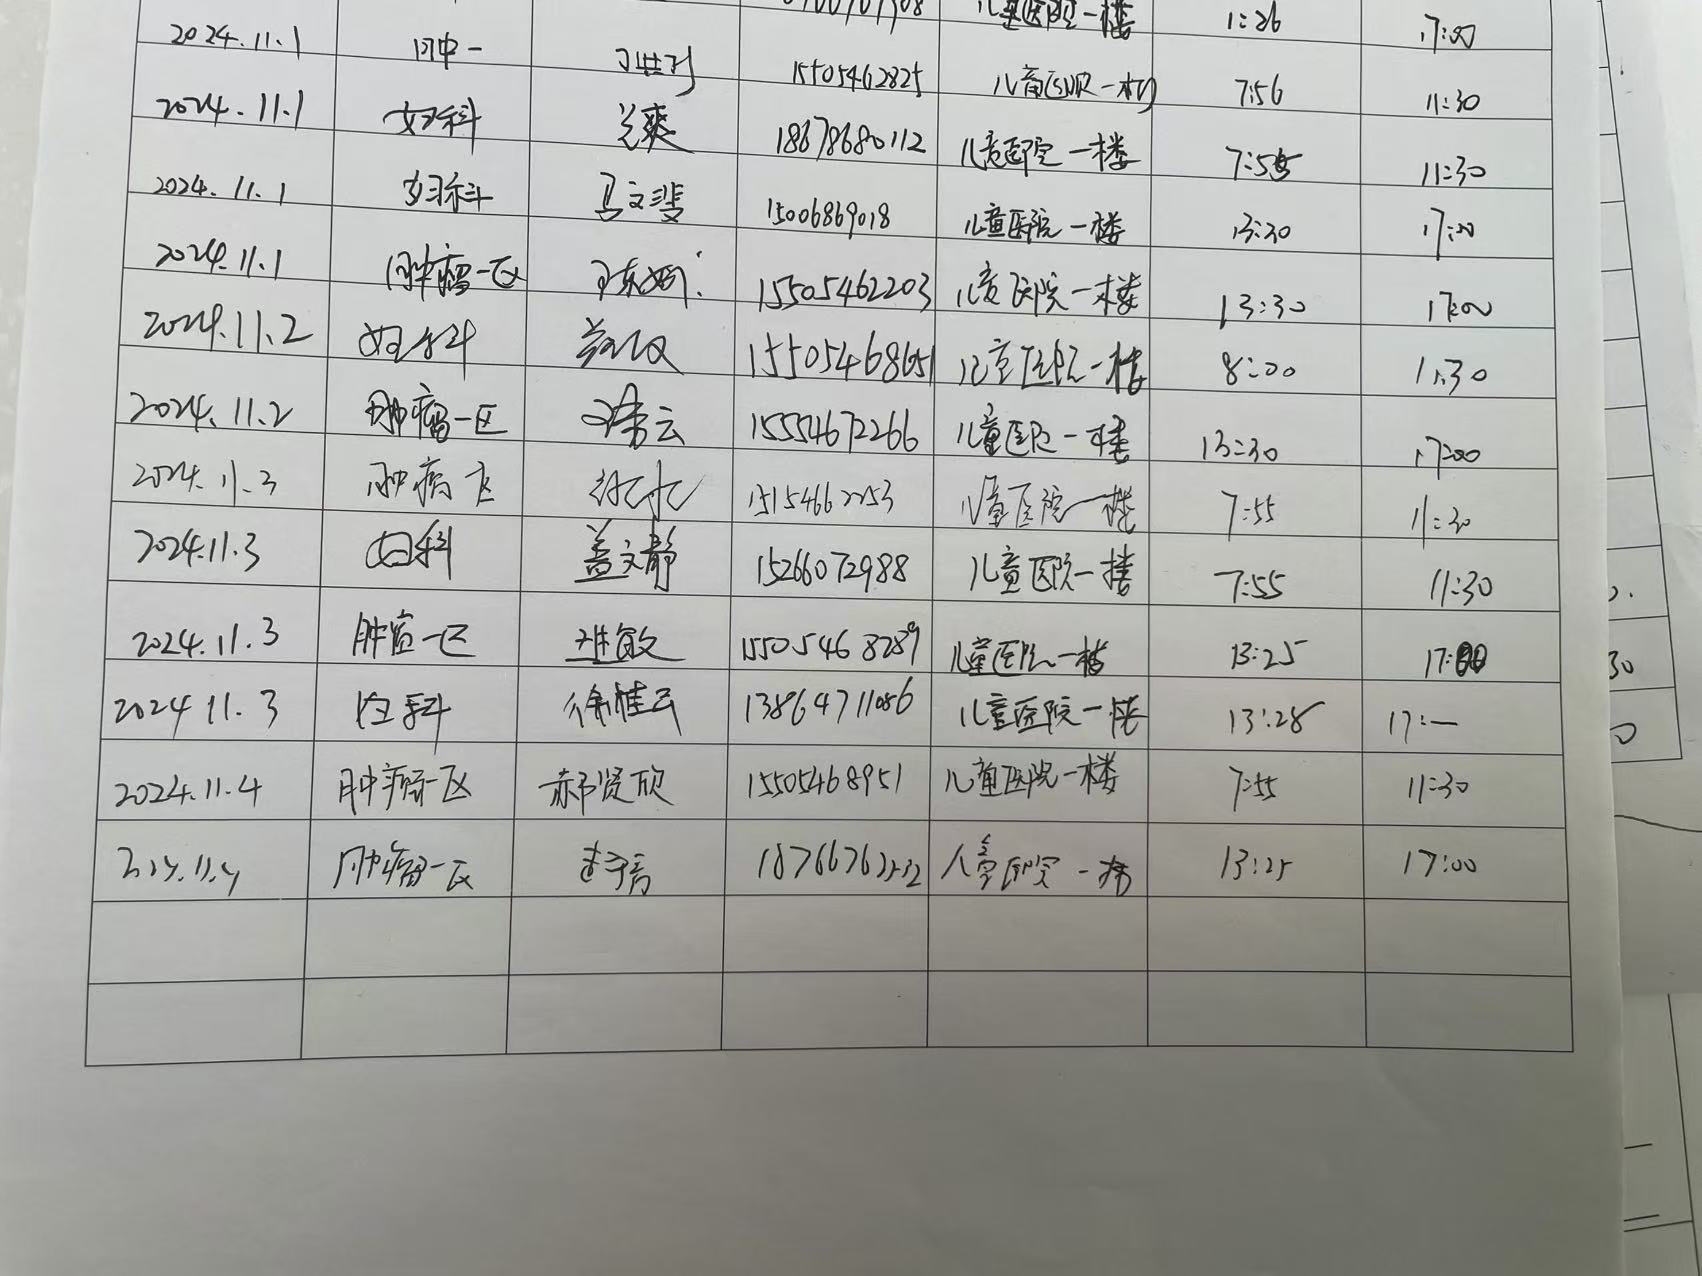 儿童医院一楼 1:26 17:00
2024.11.1 肿一 15505462825 儿童医院一楼 7:56 11:30
2024.11.1 妇科 兰爽 18678680112 儿童医院一楼 7:55 11:30
2024.11.1 妇科 马文斐 15006869018 儿童医院一楼 13:30 17:00
2024.11.1 肿瘤一区 15505462203 儿童医院一楼 13:30 17:00
2024.11.2 妇科 15505468651 儿童医院一楼 8:00 11:30
2024.11.2 肿瘤一区 云 15554672266 儿童医院一楼 13:30 17:00
2024.11.3 肿瘤 区 15154662253 儿童医院一楼 7:55 11:30
2024.11.3 妇科 盖文静 15266072988 儿童医院一楼 7:55 11:30
2024.11.3 肿瘤一区 敏 15505468289 儿童医院一楼 13:25 17:00
2024 11.3 妇科 徐桂云 13864711086 儿童医院一楼 13:28 17:—
2024.11.4 肿瘤一区 郝贤欣 15505468951 儿童医院一楼 7:55 11:30
2024.11.4 肿瘤一区 医院一楼 13:25 17:00